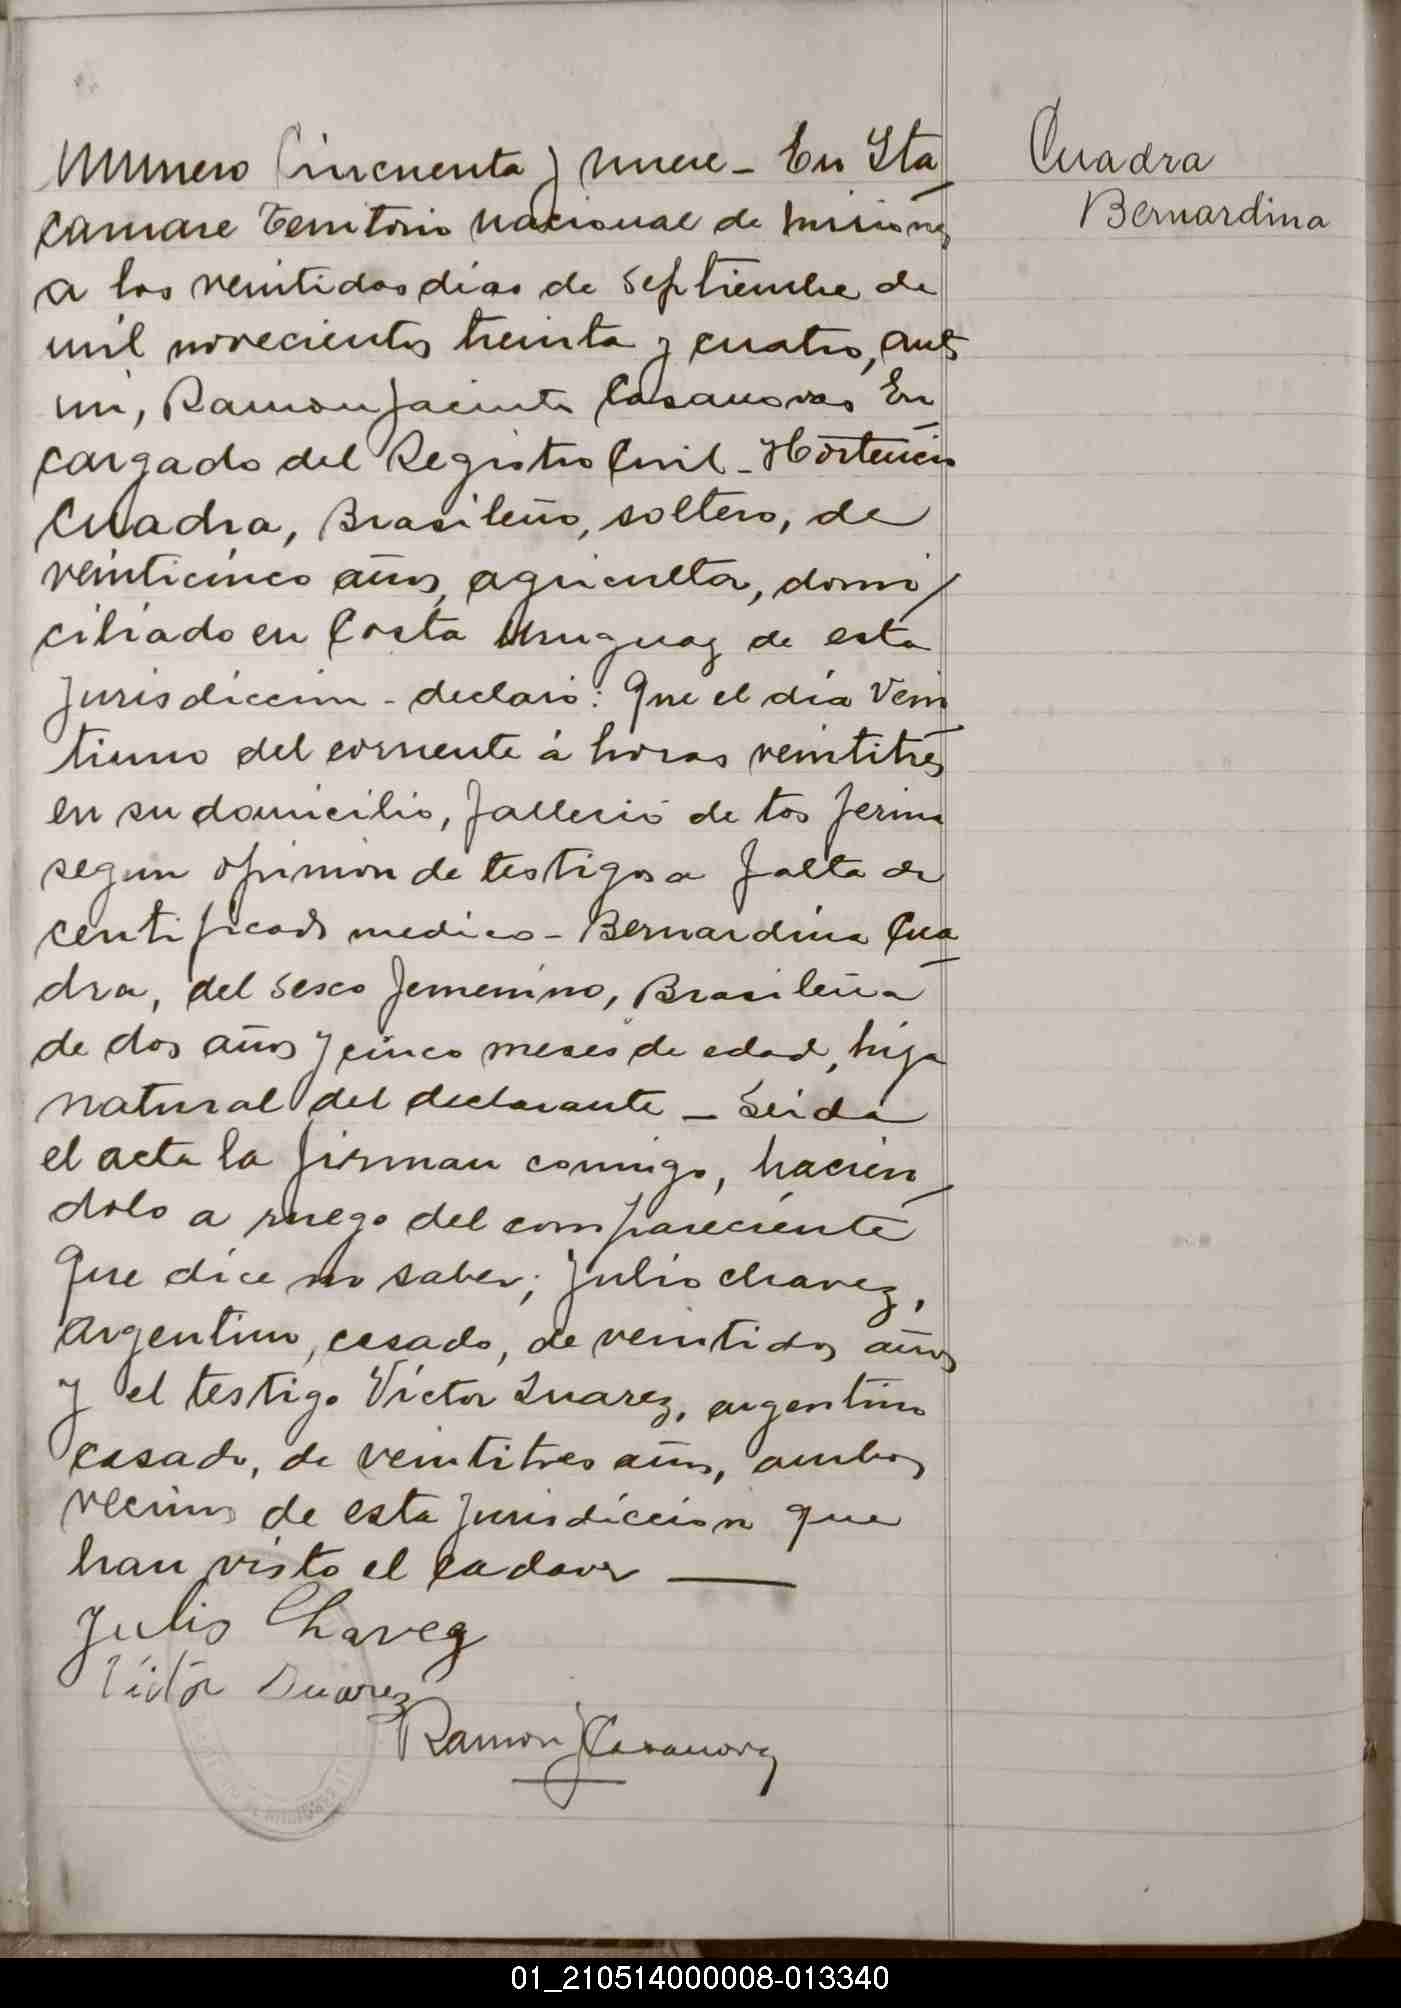 Cuadra
Bernardina
Numero Cincuenta y nueve - En Ita
camare Territorio nacional de Misiones
a los veintidos dias de Septiembre de
mil novecientos treinta y cuatro, ante
mi, Ramon Jacinto Casanovas En
cargado del Registro Civil - Hortencio
Cuadra, Brasileño, soltero, de
veinticinco años, agriculta, domi
ciliado en Costa Uruguay de esta
Jurisdiccion - declaro: Que el dia Vein
tiuno del corriente á horas veintitres
en su domicilio, fallecio de tos ferina
segun opinion de testigos a falta de
certificado medico - Bernardina Cua
dra, del sesco femenino, Brasileña
de dos años y cinco meses de edad, hija
natural del declarante - Leida
el acta la firman conmigo, hacien
dolo a ruego del compareciente
que dice no saber; Julio Chavez,
Argentino, casado, de veintidos años
y el testigo Victor Suarez, argentino
casado, de veintitres años, ambos
vecinos de esta Jurisdiccion que
han visto el cadaver
Julio Chavez
Victor Suarez
Ramon J Casanova
01_210514000008-013340